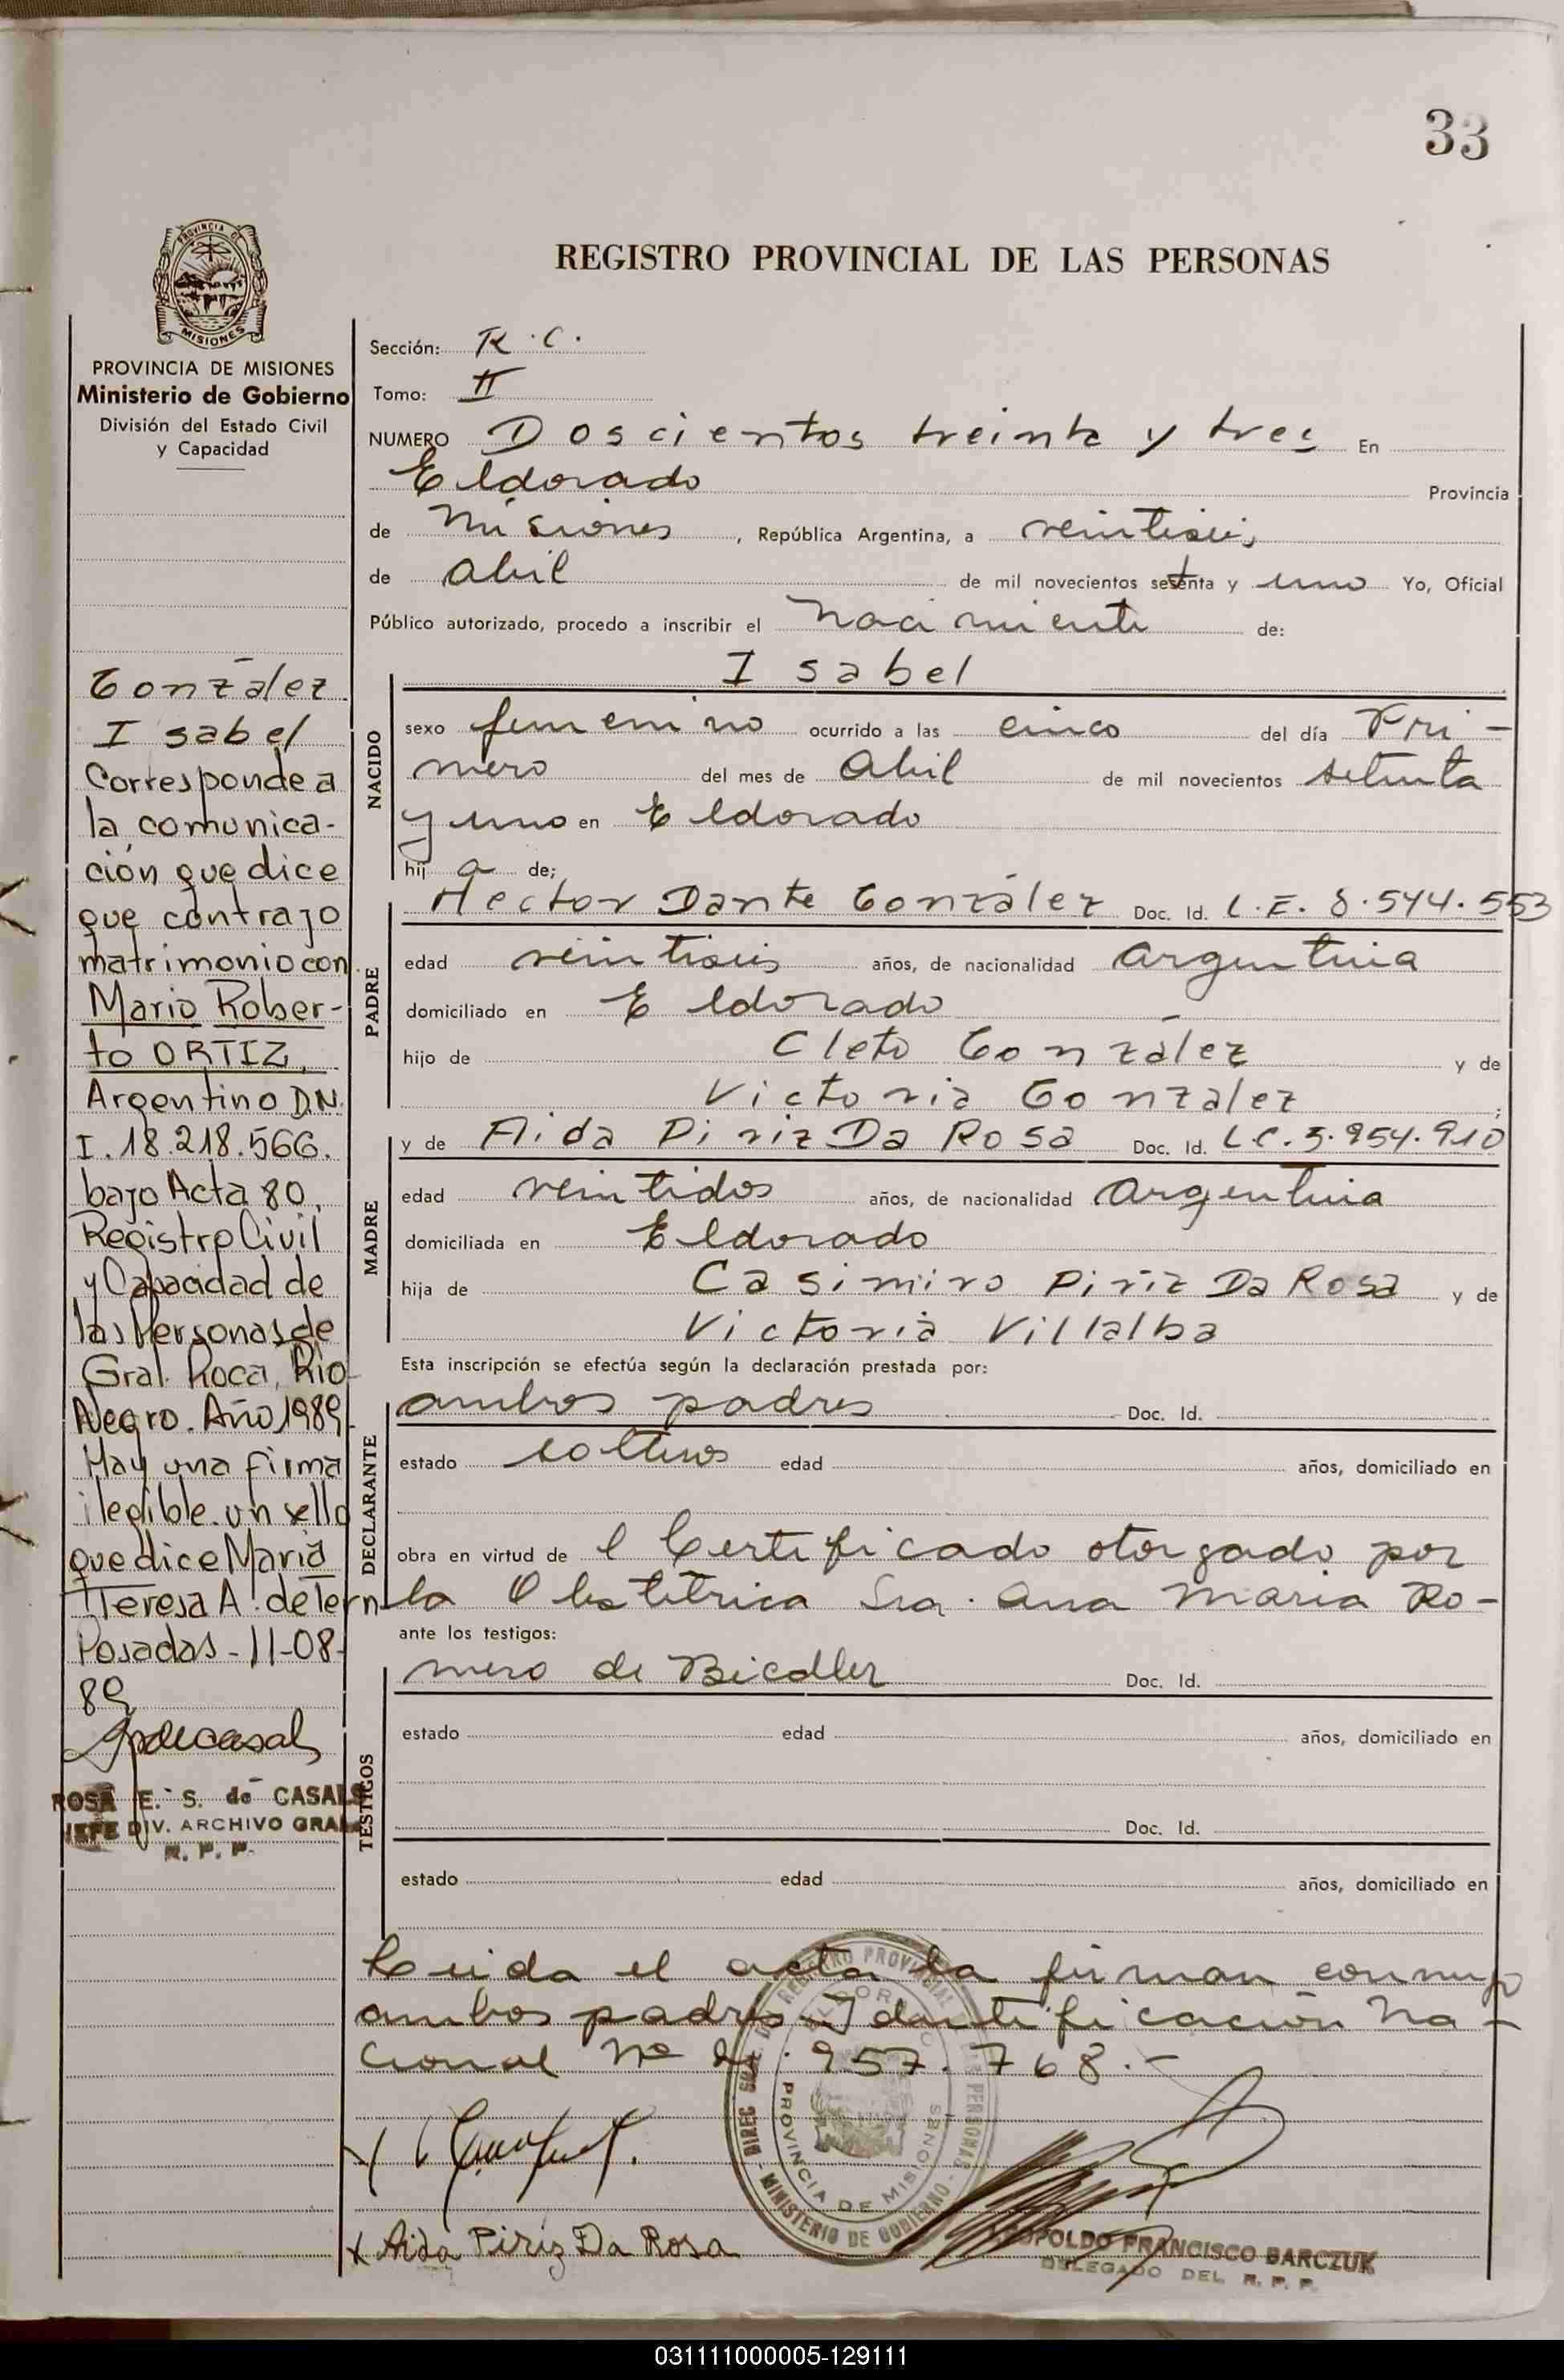 33
PROVINCIA DE
MISIONES
PROVINCIA DE MISIONES
Ministerio de Gobierno
División del Estado Civil
y Capacidad
González
Isabel
Corresponde a
la comunica-
ción que dice
que contrajo
matrimonio con
Mario Rober-
to ORTIZ,
Argentino D.N.
I. 18.218.566.
bajo Acta 80,
Registro Civil
y Capacidad de
las Personas de
Gral. Roca, Río
Negro. Año 1989.
Hay una firma
ilegible. un sello
que dice María
Teresa A. de Tern
Posadas - 11-08-
89
ROSA E. S. de CASALS
JEFE DIV. ARCHIVO GRAL.
R. P. P.
REGISTRO PROVINCIAL DE LAS PERSONAS
Sección: R.C.
Tomo: II
NUMERO Doscientos treinta y tres En
Eldorado Provincia
de Misiones, República Argentina, a veintiseis
de abril de mil novecientos setenta y uno Yo, Oficial
Público autorizado, procedo a inscribir el nacimiento de:
Isabel
NACIDO
sexo femenino ocurrido a las cinco del día Pri-
mero del mes de Abril de mil novecientos setenta
y uno en Eldorado
hij a de;
PADRE
Hector Dante González Doc. Id. L.E. 8.544.553
edad veintiseis años, de nacionalidad Argentina
domiciliado en Eldorado
hijo de Cleto González y de
Victoria González;
MADRE
y de Aida Piriz Da Rosa Doc. Id. L.C. 5.954.910
edad veintidos años, de nacionalidad Argentina
domiciliada en Eldorado
hija de Casimiro Piriz Da Rosa y de
Victoria Villalba
Esta inscripción se efectúa según la declaración prestada por:
DECLARANTE
ambos padres Doc. Id.
estado solteros edad años, domiciliado en
obra en virtud de l Certificado otorgado por
la Obstétrica Sra. Ana Maria Ro-
ante los testigos:
TESTIGOS
mero de Doc. Id.
estado edad años, domiciliado en
Doc. Id.
estado edad años, domiciliado en
Leida el acta la firman conmigo
ambos padres. Identificación Na-
cional Nº .957.768.-
DIREC. GRAL. DE REGISTRO PROVINCIAL DE LAS PERSONAS - MINISTERIO DE GOBIERNO -
ELDORADO
PROVINCIA DE MISIONES
x Aida Piriz Da Rosa
LEOPOLDO FRANCISCO BARCZUK
DELEGADO DEL R. P. P.
031111000005-129111